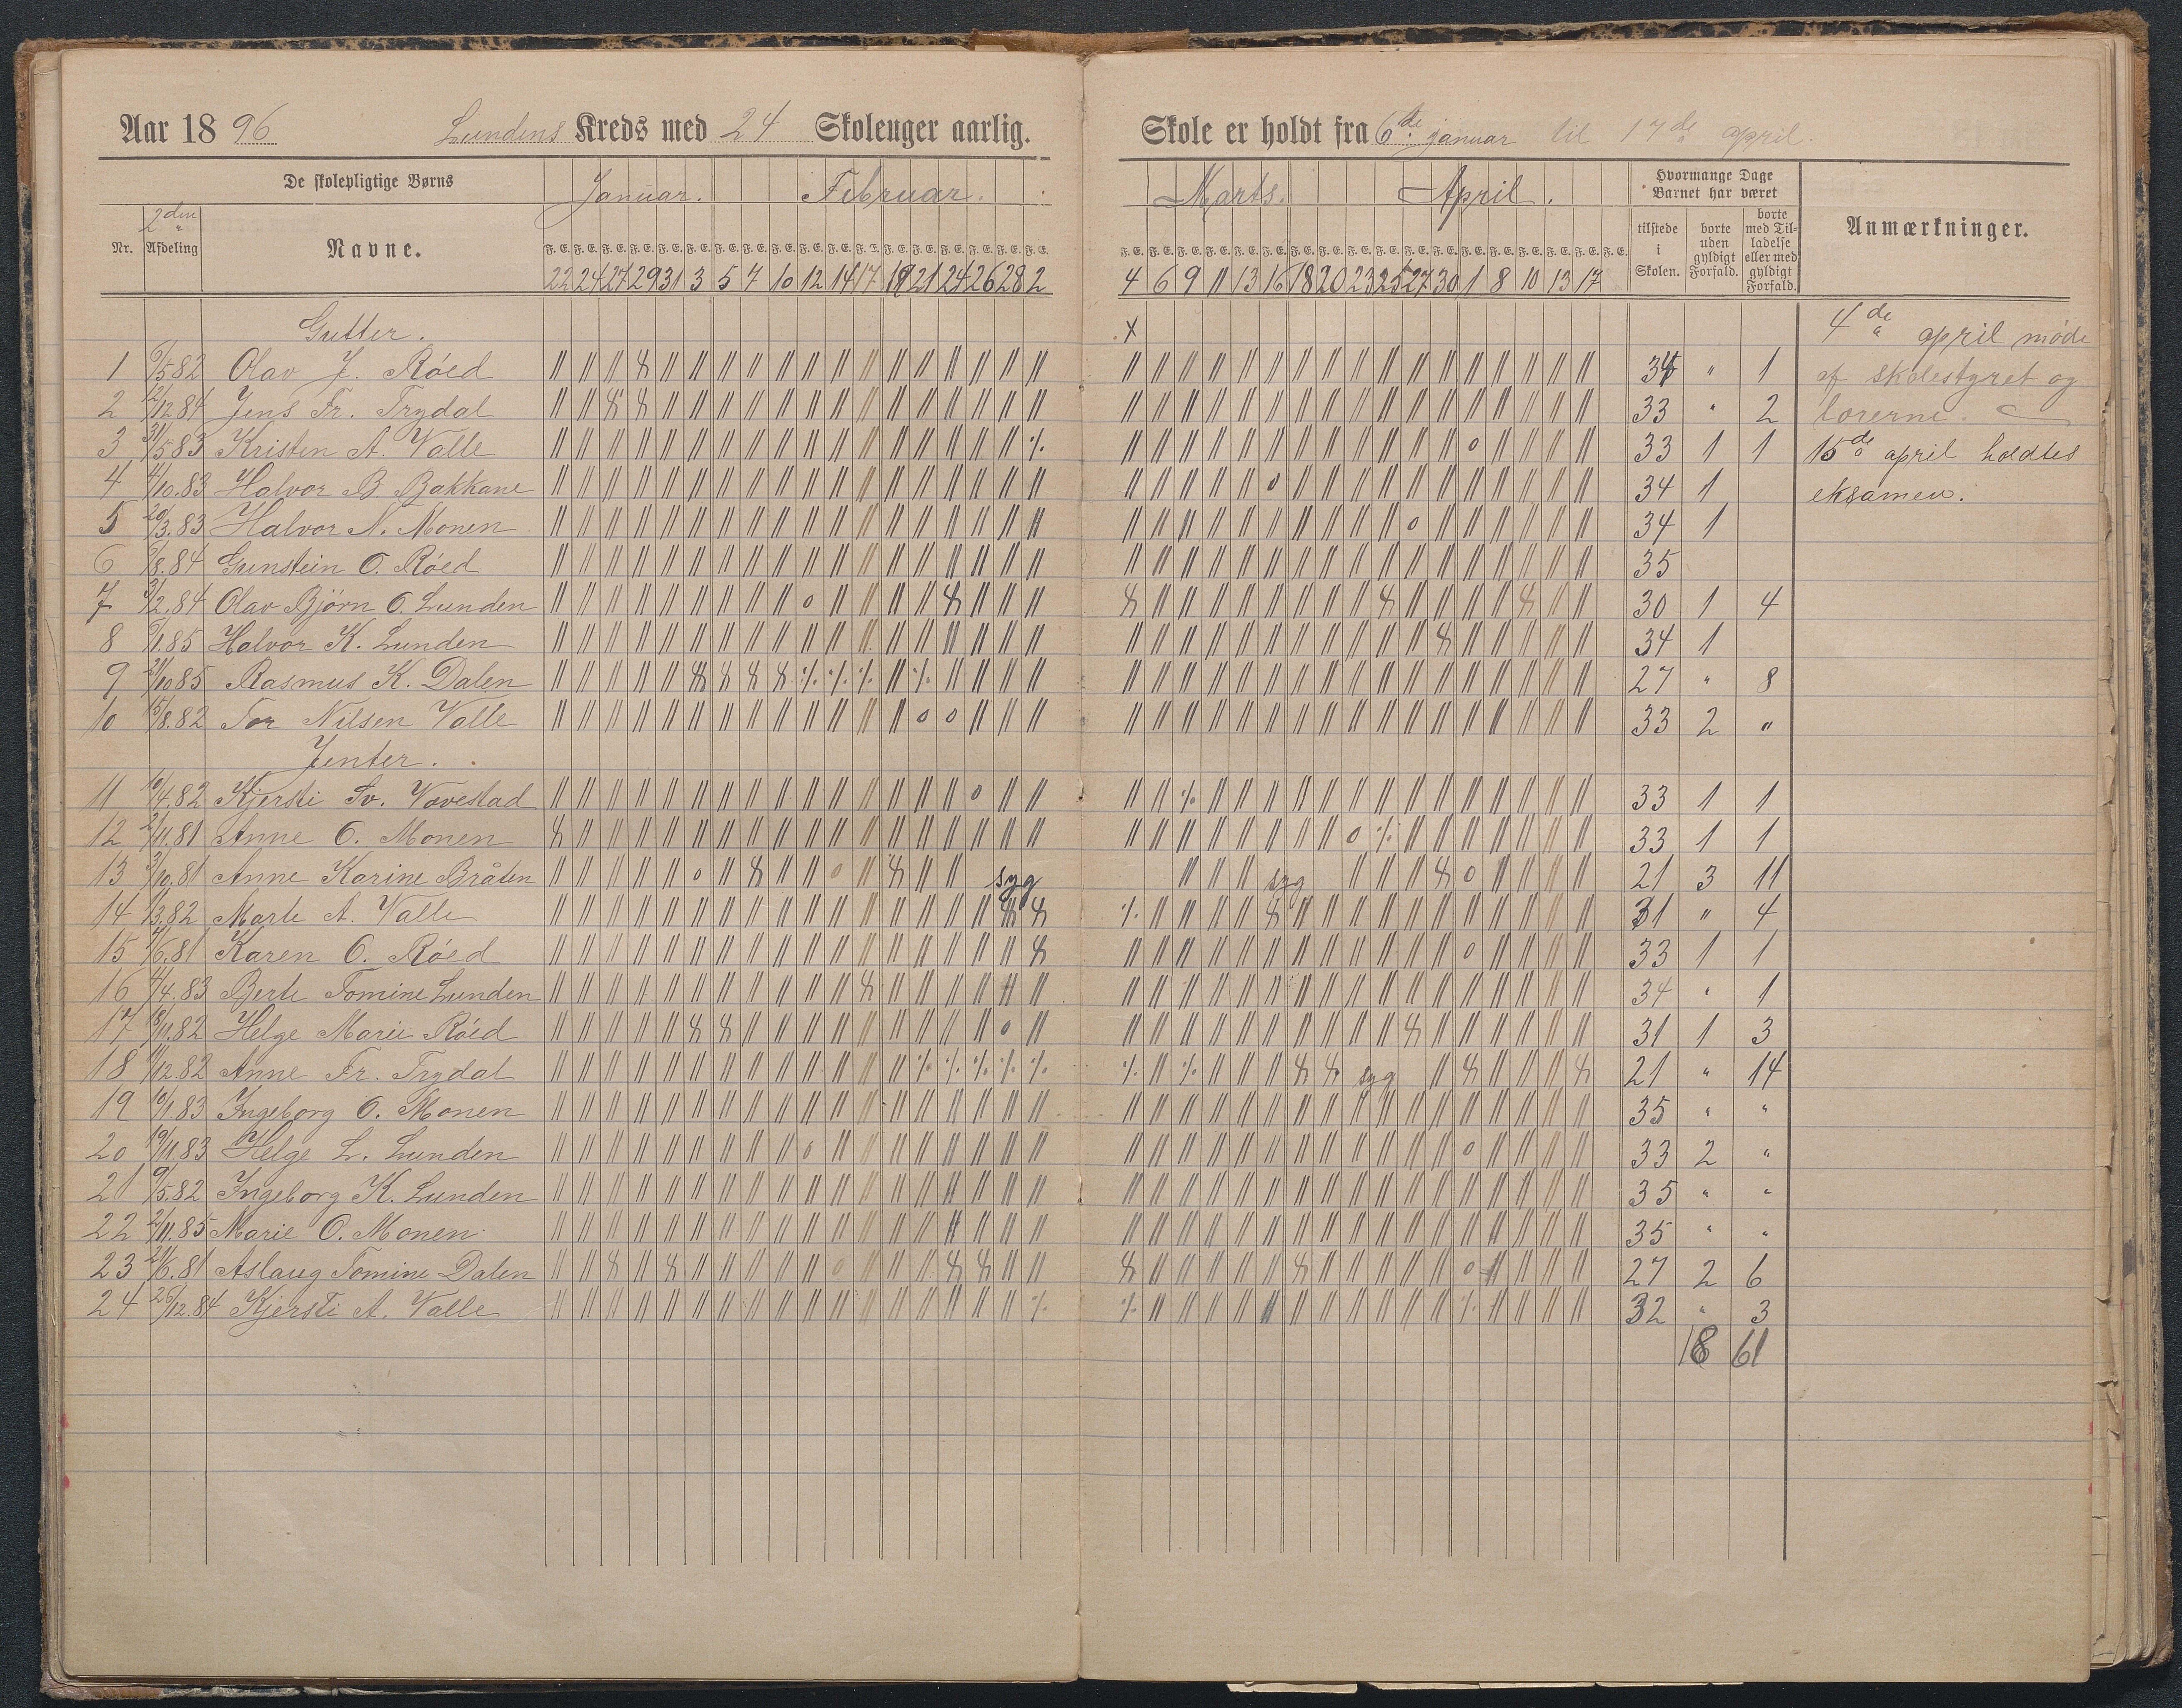 Aar 1896 Lundens Kreds med 24 Skoleuger aarlig.
De skolepligtige Børns Januar. Februar.
2den
Nr. Afdeling Navne. F. E. F. E. F. E. F. E. F. E. F. E. F. E. F. E. F. E. F. E. F. E. F. E. F. E. F. E. F. E. F. E. F. E. F. E.
22 24 27 29 31 3 5 7 10 12 14 17 19 21 24 26 28 2
Gutter.
1 82 Olav J. Róed
2 12 84 Jens Fr. Trydal
3 31/5 83 Kristen A. Valle
4 4/10.83 Halvor B. Bakkane
5 20/3.83 Halvor N. Monen
6 84 Gunstein O. Róed
7 2.84 Olav Bjørn O. Lunden
8 1.85 Halvor K. Lunden
9 10 85 Rasmus K. Dalen
10 15/8.82 Tor Nilsen Valle
Jenter.
11 4.82 Kjersti Sv. Vovestad
12 11.81 Anne O. Monen
13 10.81 Anne Karine Bråten syg
14 3.82 Marte A. Valle
15 6.81 Karen O. Róed
16 4.83 Berte Tomine Lunden
17 18/11.82 Helge Marie Róed
18 12.82 Anne Fr. Trydal
19 10/1.83 Ingeborg O. Monen
20 19/11.83 Helge L. Lunden
21 5.82 Ingeborg K. Lunden
22 11.85 Marie O. Monen
23 6.81 Aslaug Tomine Dalen
24 26/12.84 Kjersti A. Valle
Skole er holdt fra 6de januar til 17de april.
Marts. April. Hvormange Dage Barnet har været Anmærkninger.
F. E. F. E. F. E. F. E. F. E. F. E. F. E. F. E. F. E. F. E. F. E. F. E. F. E. F. E. F. E. F. E. F. E. F. E. tilstede i Skolen. borte uden gyldigt Forfald. borte med Tilladelse eller med gyldigt Forfald.
4 6 9 11 13 16 18 20 23 25 27 30 1 8 10 13 17
x 4de april møde
34 " 1 af skolestyret og
33 " 2 lærerne.
33 1 1 15de april holdtes
34 1 eksamen.
34 1
35
30 1 4
34 1
27 " 8
33 2 "
33 1 1
33 1 1
syg 21 3 11
31 " 4
33 1 1
34 " 1
31 1 3
syg 21 " 14
35 " "
33 2 "
35 " "
35 " "
27 2 6
32 " 3
18 61